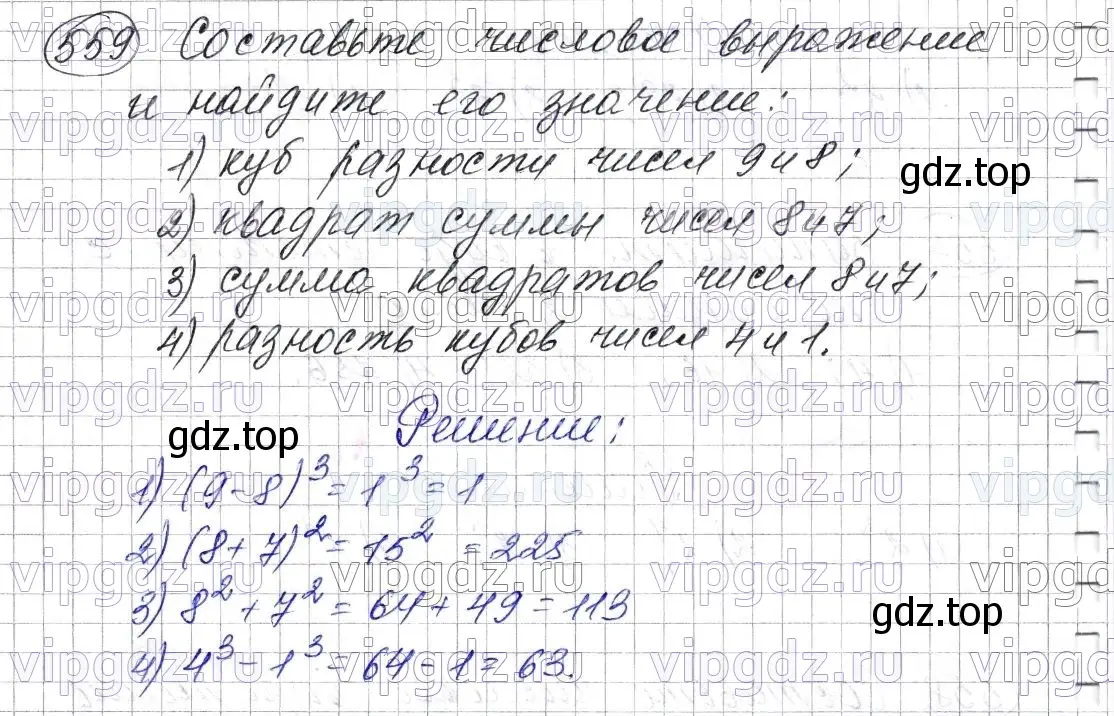 559 Составьте числовое выражение
и найдите его значение:
1) куб разности чисел 9 и 8;
gdz.top
2) квадрат суммы чисел 8 и 7;
3) сумма квадратов чисел 8 и 7;
4) разность кубов чисел 4 и 1.
Решение:
gdz.top
1) (9-8)³ = 1³ = 1
2) (8+7)² = 15² = 225
3) 8² + 7² = 64 + 49 = 113
gdz.top
4) 4³ - 1³ = 64 - 1 = 63.
vipgdz.ru